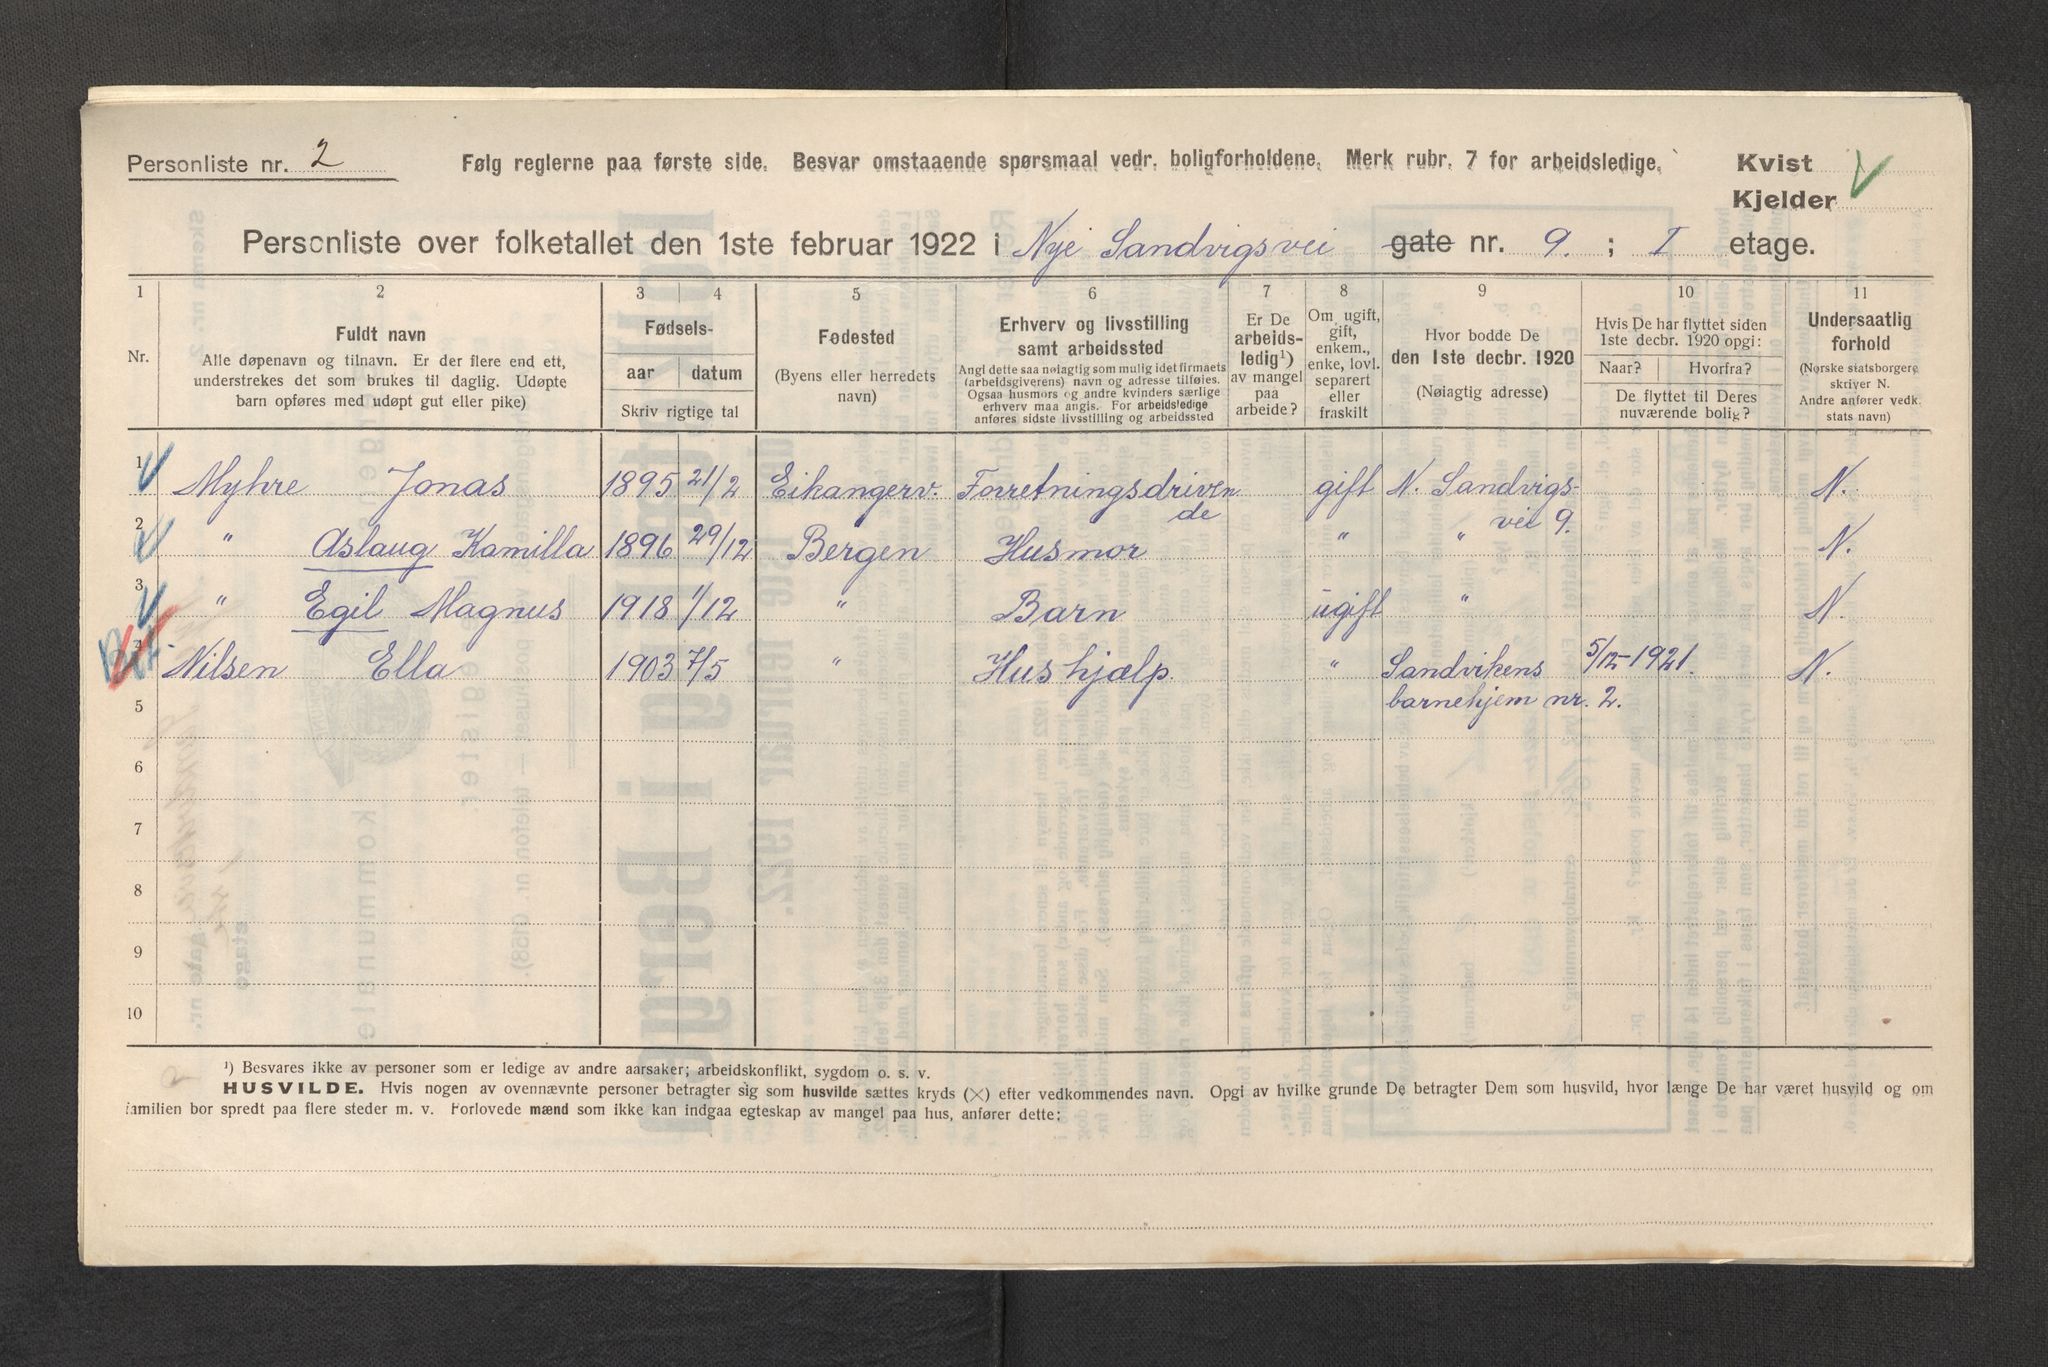 Personliste nr. 2 Følg reglerne paa første side. Besvar omstaaende spørsmaal vedr. boligforholdene. Merk rubr. 7 for arbeidsledige. Kvist
Kjelder
Personliste over folketallet den 1ste februar 1922 i Nye Sandvigsvei gate nr. 9. ; I etage.
1 2 3 4 5 6 7 8 9 10 11
Nr.
Fuldt navn
Alle døpenavn og tilnavn. Er der flere end ett,
understrekes det som brukes til daglig. Udøpte
barn opføres med udøpt gut eller pike)
Fødsels-
aar datum
Skriv rigtige tal
Fødested
(Byens eller herredets
navn)
Erhverv og livsstilling
samt arbeidssted
Angi dette saa nøiagtig som mulig idet firmaets
(arbeidsgiverens) navn og adresse tilføies.
Ogsaa husmors og andre kvinders særlige
erhverv maa angis. For arbeidsledige
anføres sidste livsstilling og arbeidssted
Er De
arbeids-
ledig¹)
av mangel
paa
arbeide?
Om ugift,
gift,
enkem.,
enke, lovl.
separert
eller
fraskilt
Hvor bodde De
den 1ste decbr. 1920
(Nøiagtig adresse)
Hvis De har flyttet siden
1ste decbr. 1920 opgi:
Naar? Hvorfra?
De flyttet til Deres
nuværende bolig?
Undersaatlig
forhold
(Norske statsborgere
skriver N.
Andre anfører vedk.
stats navn)
1 Myhre Jonas 1895 21/2 Eikangerv. Forretningsdriven gift N. Sandvigs- N.
de vei 9.
2 " Aslaug Kamilla 1896 29/12 Bergen Husmor " " N.
3 " Egil Magnus 1918 1/12 " Barn ugift " N.
Nilsen Ella 1903 7/5 " Hushjælp " Sandvikens 5/12-1921. N.
5 barnehjem nr. 2.
6
7
8
9
10
¹) Besvares ikke av personer som er ledige av andre aarsaker; arbeidskonflikt, sygdom o. s. v.
HUSVILDE. Hvis nogen av ovennævnte personer betragter sig som husvilde sættes kryds (×) efter vedkommendes navn. Opgi av hvilke grunde De betragter Dem som husvild, hvor længe De har været husvild og om
familien bor spredt paa flere steder m. v. Forlovede mænd som ikke kan indgaa egteskap av mangel paa hus, anfører dette: